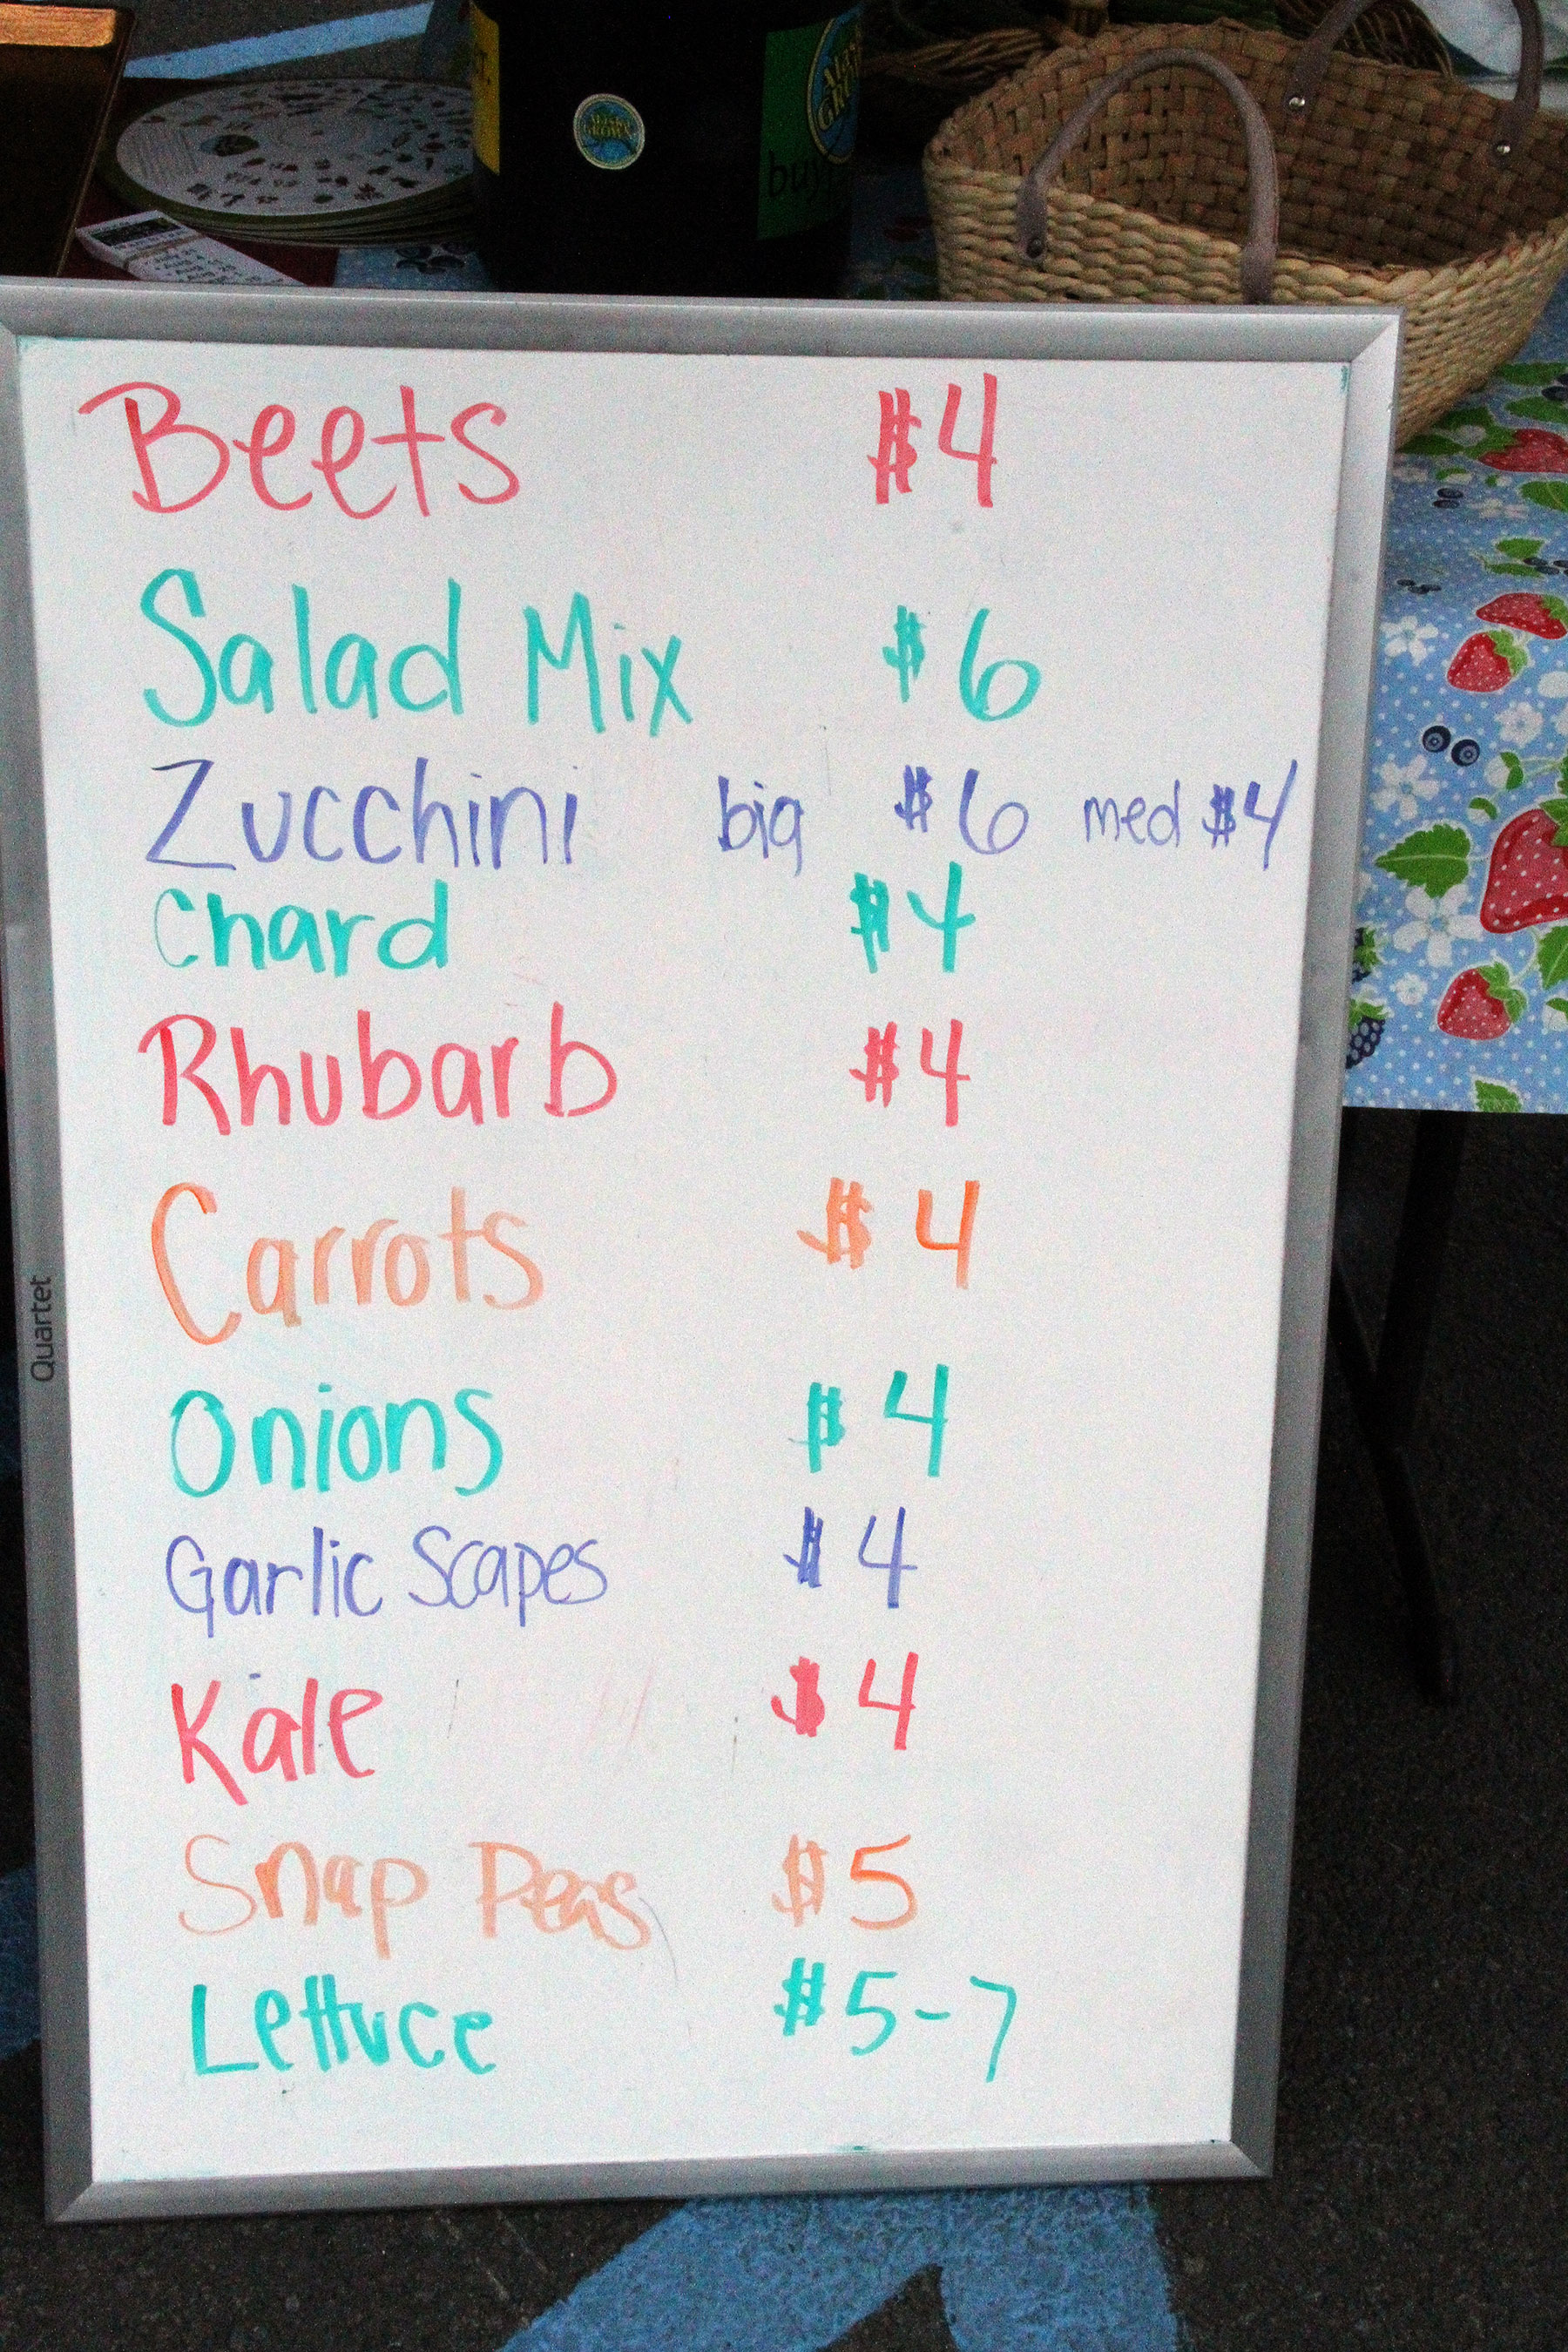 ALASKA GROWN
buy
Beets $4
Salad Mix $6
Zucchini big $6 med $4
Chard $4
Rhubarb $4
Carrots $4
Onions $4
Garlic Scapes $4
Kale $4
Snap Peas $5
Lettuce $5-7
Quartet